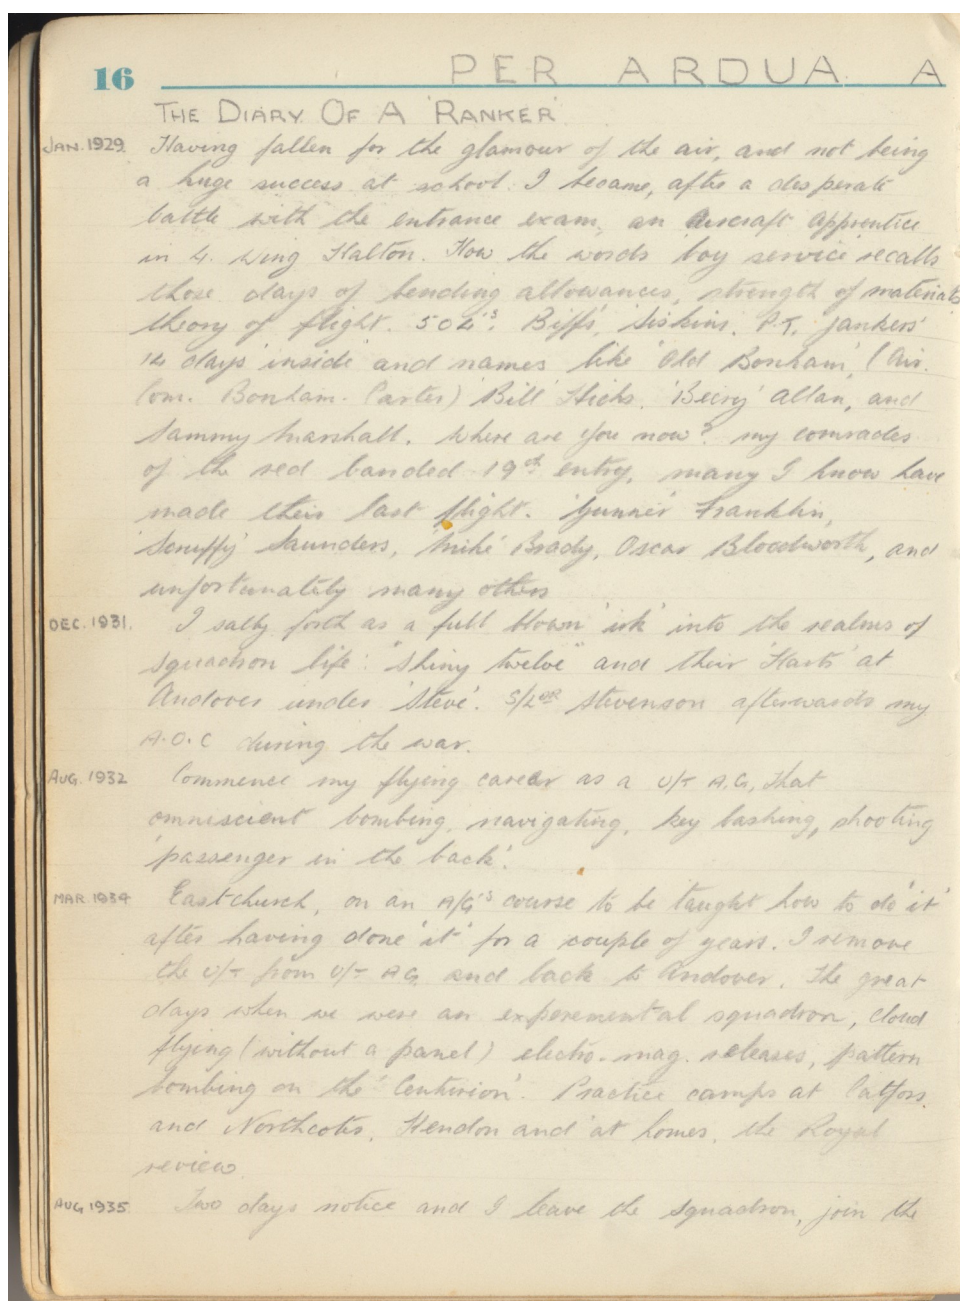 16
PER ARDUA A
THE DIARY OF A 'RANKER'
JAN. 1929. Having fallen for the glamour of the air, and not being
a huge success at school. I became, after a desperate
battle with the entrance exam, an Aircraft Apprentice
in 4. Wing Halton. How the words 'boy service' recalls
those days of bending allowances, strength of materials
theory of flight. 504's. Biffs, Siskins. P.T. jankers'
14 days 'inside' and names like 'Old Bonham' (Air.
Com. Bonham-Carter) 'Bill' Hicks. 'Beery' Allan, and
Sammy Marshall. Where are you now? my comrades
of the red banded 19th entry, many I know have
made their last flight. 'Gunner' Franklin,
'Scruffy' Saunders, 'Mike' Brady, Oscar Bloodworth, and
unfortunately many others
DEC. 1931. I sally forth as a full blown 'irk' into the realms of
squadron life: "Shiny twelve" and their 'Harts' at
Andover under 'Steve'. S/LDR Stevenson afterwards my
A.O.C during the war.
AUG. 1932 Commence my flying career as a U/T A.G, that
omniscient bombing, navigating, key bashing, shooting
'passenger in the back'.
MAR. 1934 Eastchurch, on an A/G's course to be taught how to do 'it'
after having done 'it' for a couple of years. I remove
the U/T from U/T AG and back to Andover. The great
days when we were an experemental squadron, cloud
flying (without a panel) electro. mag. releases, pattern
bombing on the 'Centurion'. Practice camps at Catfoss.
and Northcotes, Hendon and at homes, the Royal
review.
AUG 1935. Two days notice and I leave the squadron, join the